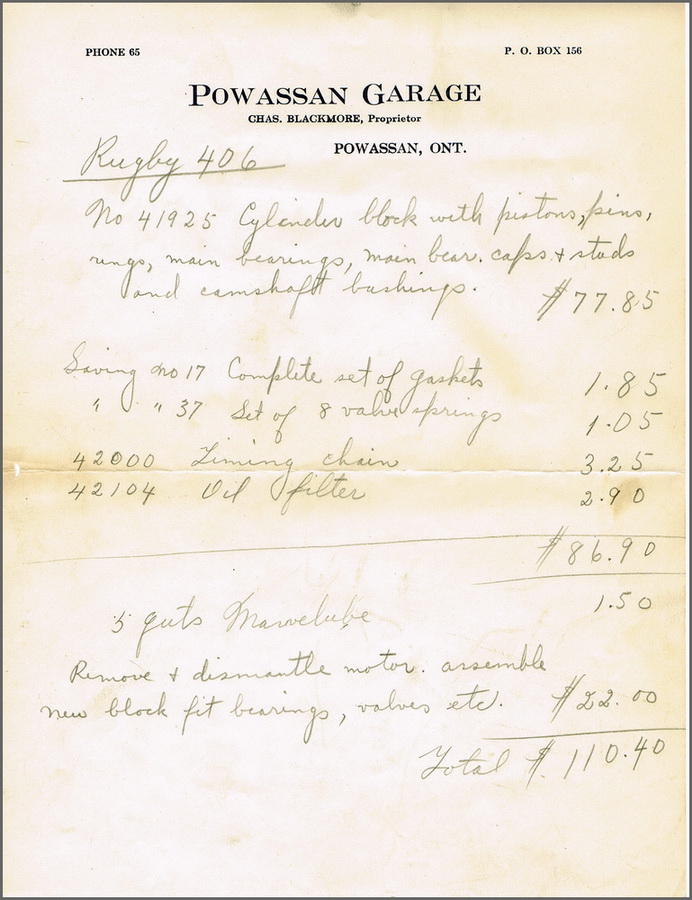 PHONE 65
P. O. BOX 156
POWASSAN GARAGE
CHAS. BLACKMORE, Proprietor
POWASSAN, ONT.
Rugby 406
No 41925 Cylinder block with pistons, pins,
rings, main bearings, main bear. caps & studs
and camshaft bushings. $77.85
Saving no 17 Complete set of gaskets 1.85
" " 37 Set of 8 valve springs 1.05
42000 Timing chain 3.25
42104 Oil filter 2.90
$86.90
5 quts Marvelube 1.50
Remove & dismantle motor. assemble
new block fit bearings, valves etc. $22.00
Total $110.40